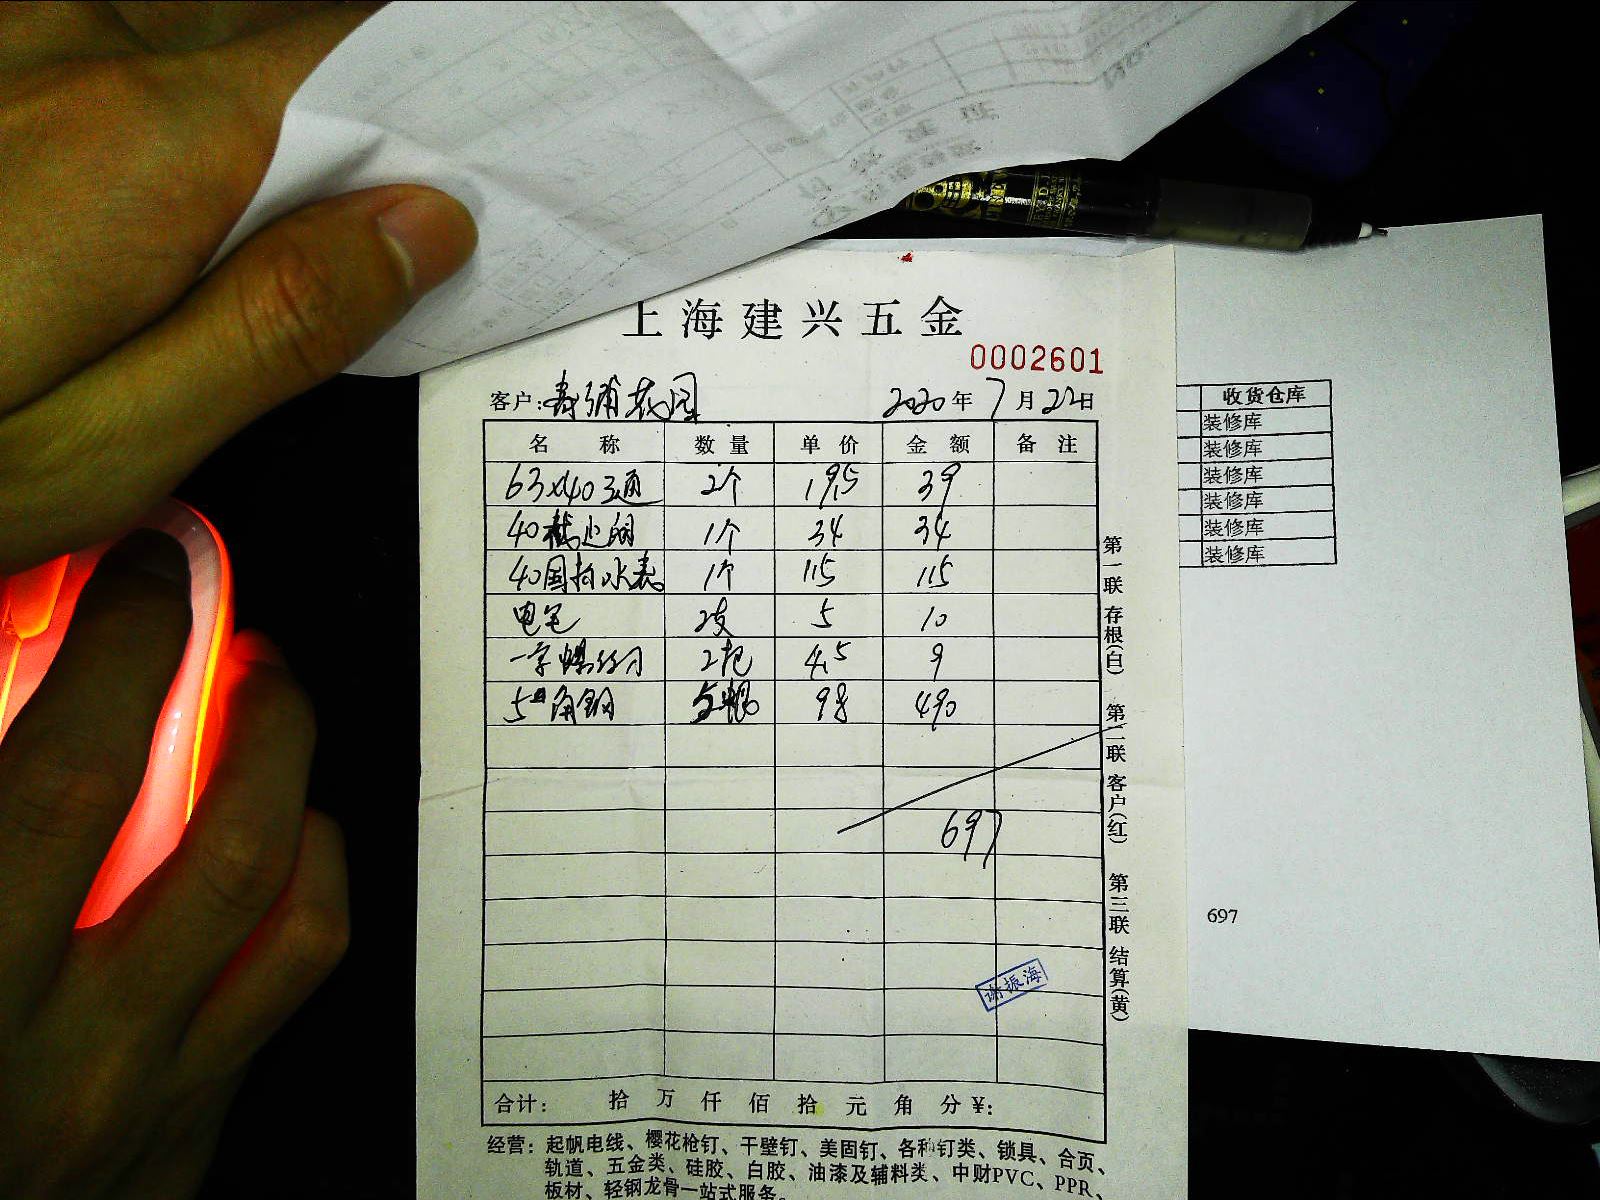 上海建兴五金
0002601
客户: 花园 2020年7月22日
名称 数量 单价 金额 备注
63×40三通 2个 19.5 39
40截止阀 1个 34 34
40国标水表 1个 115 115
电笔 2支 5 10
一字螺丝刀 2把 4.5 9
5#角钢 5根 98 490
697
谢振海
合计: 拾 万 仟 佰 拾 元 角 分 ¥:
经营: 起帆电线、樱花枪钉、干壁钉、美固钉、各种钉类、锁具、合页、
轨道、五金类、硅胶、白胶、油漆及辅料类、中财PVC、PPR、
板材、轻钢龙骨一站式服务。
第一联 存根(白) 第二联 客户(红) 第三联 结算(黄)
收货仓库
装修库
装修库
装修库
装修库
装修库
装修库
697